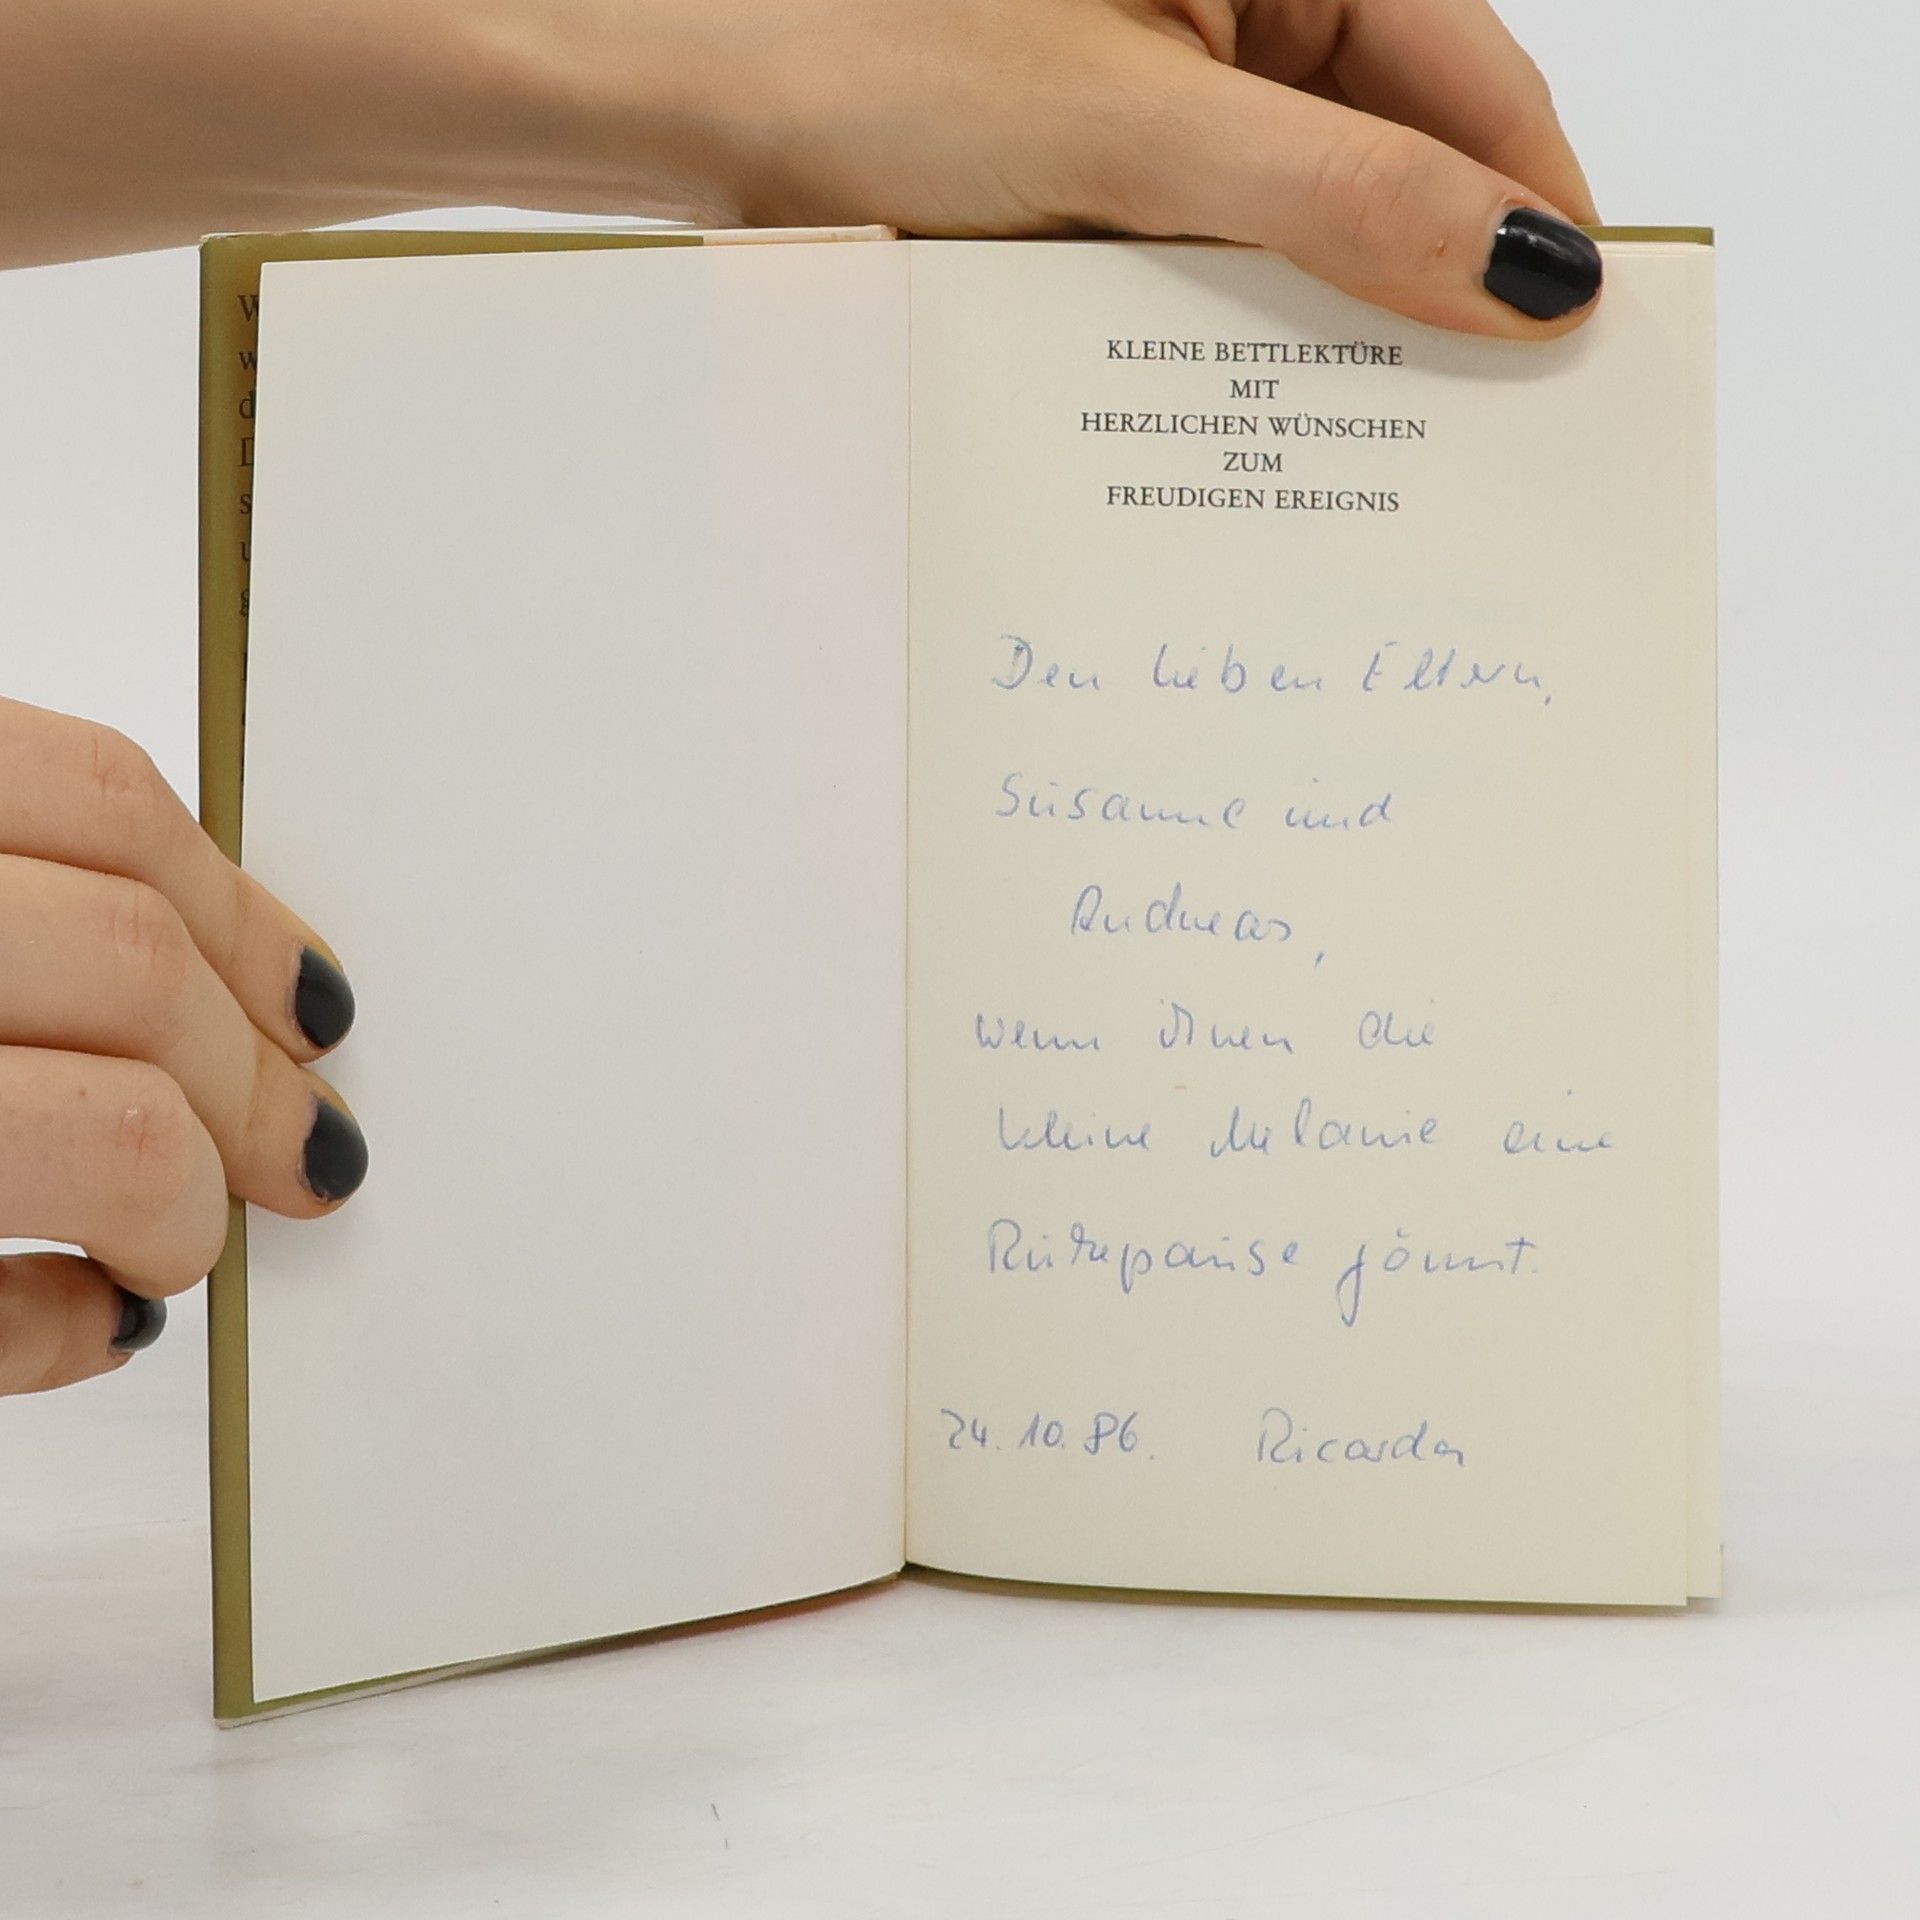 KLEINE BETTLEKTÜRE
MIT
HERZLICHEN WÜNSCHEN
ZUM
FREUDIGEN EREIGNIS
Den lieben Eltern,
Susanne und
Andreas,
wenn ihnen die
kleine Melanie eine
Ruhepause gönnt.
24.10.86. Ricarda